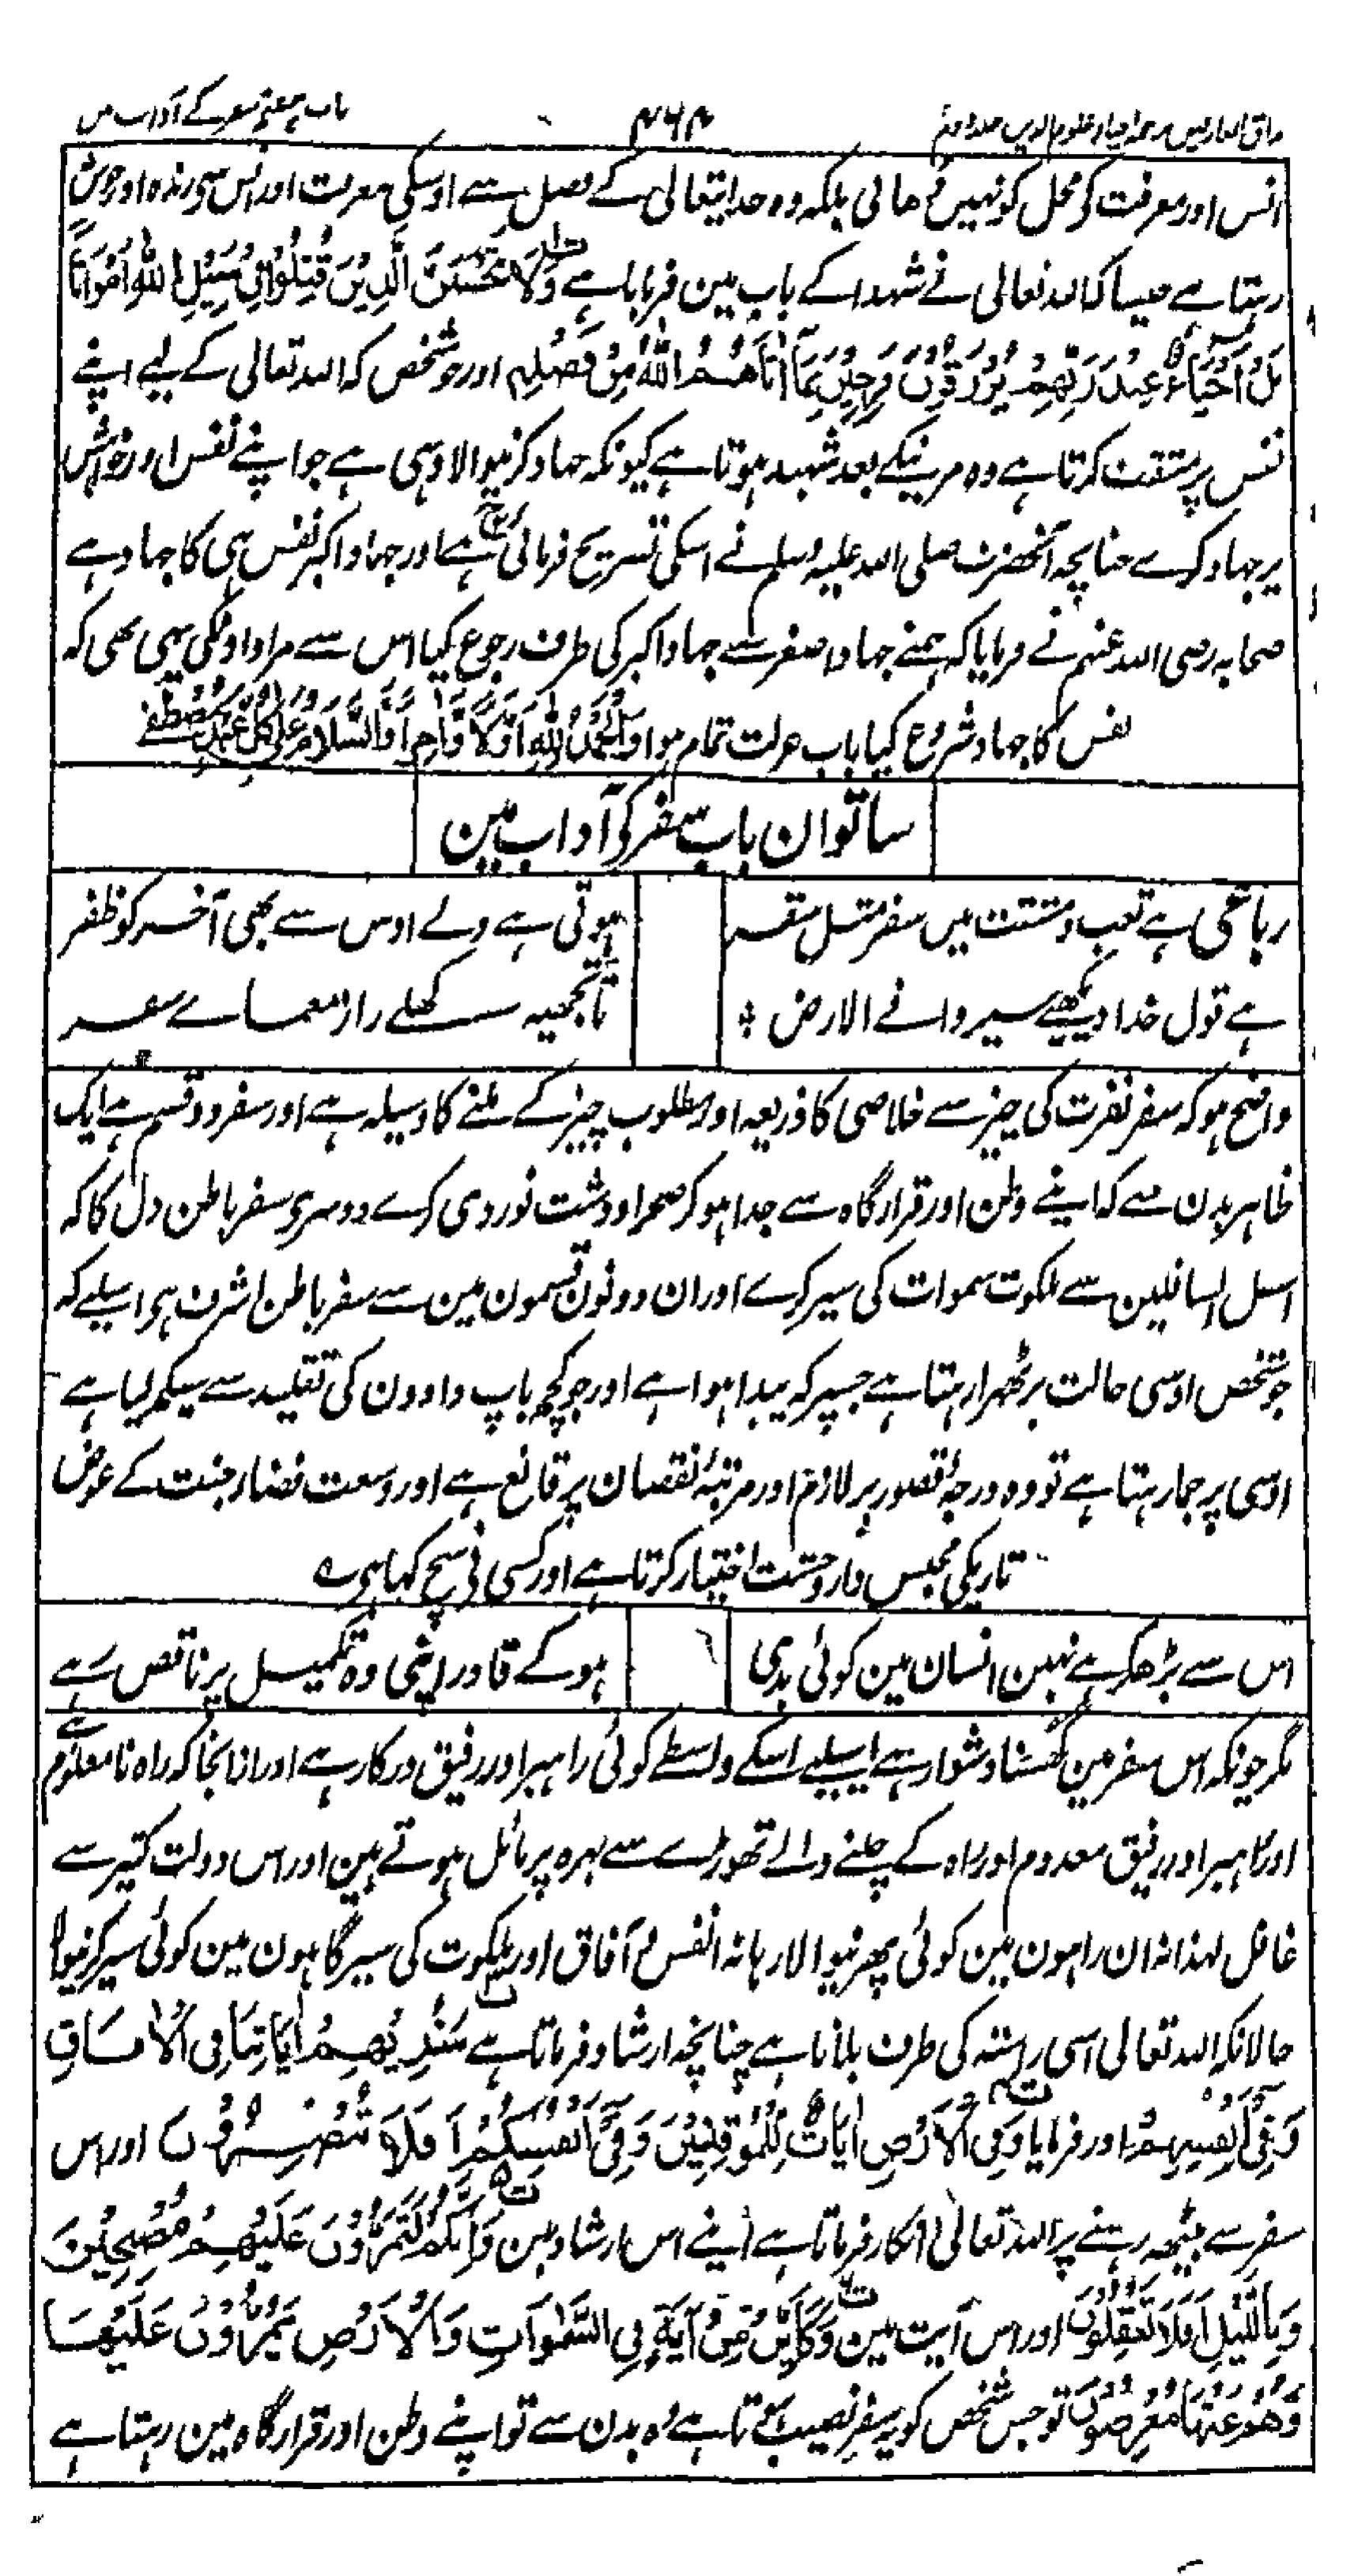 مذاق العارفین ترجمہ احیاء علوم الدین جلد دوم
۴۶۴
باب ہفتم سفر کے آداب میں
انس اور معرفت کی محل کو نہیں کھاتی بلکہ وہ خدایتعالی کے فضل سے اوسکی معرفت اور انس سی زندہ اور خوش
رہتا ہے جیسا کہ اللہ تعالی نے شہدا کے باب مین فرمایا ہے وَلَا تَحْسَبَنَّ الَّذِیْنَ قُتِلُوْا فِیْ سَبِیْلِ اللّٰہِ اَمْوَاتًا
بَلْ اَحْیَاءٌ عِنْدَ رَبِّہِمْ یُرْزَقُوْنَ فَرِحِیْنَ بِمَا اٰتَاہُمُ اللّٰہُ مِنْ فَضْلِہٖ اور جو شخص کہ اللہ تعالی کے لیے اپنے
نفس پر مشقت کرتا ہے وہ مرنیکے بعد شہید ہوتا ہے کیونکہ جہاد کرنیوالا وہی ہے جو اپنے نفس اور خواہش
پر جہاد کرے چنانچہ آنحضرت صلی اللہ علیہ وسلم نے اسکی تشریح فرمائی ہے اور جہاد اکبر نفس ہی کا جہاد ہے
صحابہ رضی اللہ عنہم نے فرمایا کہ ہمنے جہاد اصغر سے جہاد اکبر کی طرف رجوع کیا اس سے مراد اونکی یہی تھی کہ
نفس کا جہاد شروع کیا باب عزلت تمام ہوا وَالْحَمْدُ لِلّٰہِ اَوَّلًا وَّاٰخِرًا وَالسَّلَامُ عَلٰی کُلِّ عَبْدٍ مُّصْطَفٰے
ساتوان باب سفر کی آداب مین
رباعی ہے تعب و مشقت میں سفر مثل سقر
ہوتی ہے ولے اوس سے بھی آخر کو ظفر
ہے قول خدا دیکھیے سیروا فے الارض
تا تجھپہ کھلے راز معماے سفر
واضح ہو کہ سفر نفرت کی چیز سے خلاصی کا ذریعہ اور مطلوب چیز کے ملنے کا وسیلہ ہے اور سفر دو قسم ہے ایک
ظاہر بدن سے کہ اپنے وطن اور قرارگاہ سے جدا ہو کر صحرا و دشت نوردی کرے دوسری سفر باطن دل کا کہ
اسفل السافلین سے ملکوت سموات کی سیر کرے اور ان دونون قسمون مین سے سفر باطن اشرف ہی اسلیے کہ
جو شخص اوسی حالت پر ٹھہرا رہتا ہے جسپر کہ پیدا ہوا ہے اور جو کچھ باپ دادون کی تقلید سے سیکھ لیا ہے
اوسی پر جما رہتا ہے تو وہ درجۂ قصور پر لازم اور مرتبۂ نقصان پر قانع ہے اور وسعت فضاء جنت کے عوض
تاریکی محبس دار وحشت اختیار کرتا ہے اور کسی نی سچ کہا ہی ؎
اس سے بڑھکر ہے نہین انسان مین کوئی بدی
ہو کے قادر اپنی وہ تکمیل پر ناقص رہے
مگر چونکہ اس سفر مین گھسنا دشوار ہے اسیلیے اسکے واسطے کوئی راہبر اور رفیق درکار ہے اور ازانجا کہ راہ نامعلوم ہے
اور راہبر اور رفیق معدوم اور راہ کے چلنے والے تھوڑے سے بہرہ پر مائل ہوتے ہین اور اس دولت کثیر سے
غافل لہذا نہ ان راہون مین کوئی پھرنیوالا رہا نہ انفس و آفاق اور ملکوت کی سیرگاہون مین کوئی سیر کرنیوالا
حالانکہ اللہ تعالی اسی راستہ کی طرف بلاتا ہے چنانچہ ارشاد فرماتا ہے سَنُرِیْہِمْ اٰیَاتِنَا فِی الْاٰفَاقِ
وَفِیْ اَنْفُسِہِمْ اور فرمایا وَفِی الْاَرْضِ اٰیَاتٌ لِّلْمُوْقِنِیْنَ وَفِیْ اَنْفُسِکُمْ اَفَلَا تُبْصِرُوْنَ اور اس
سفر سے بیٹھ رہنے پر اللہ تعالی انکار فرماتا ہے اپنے اس ارشاد مین وَاِنَّکُمْ لَتَمُرُّوْنَ عَلَیْہِمْ مُّصْبِحِیْنَ
وَبِاللَّیْلِ اَفَلَا تَعْقِلُوْنَ اور اس آیت مین وَکَاَیِّنْ مِّنْ اٰیَۃٍ فِی السَّمٰوَاتِ وَالْاَرْضِ یَمُرُّوْنَ عَلَیْہَا
وَہُمْ عَنْہَا مُعْرِضُوْنَ تو جس شخص کو یہ سفر نصیب ہوتا ہے وہ بدن سے تو اپنے وطن اور قرارگاہ مین رہتا ہے